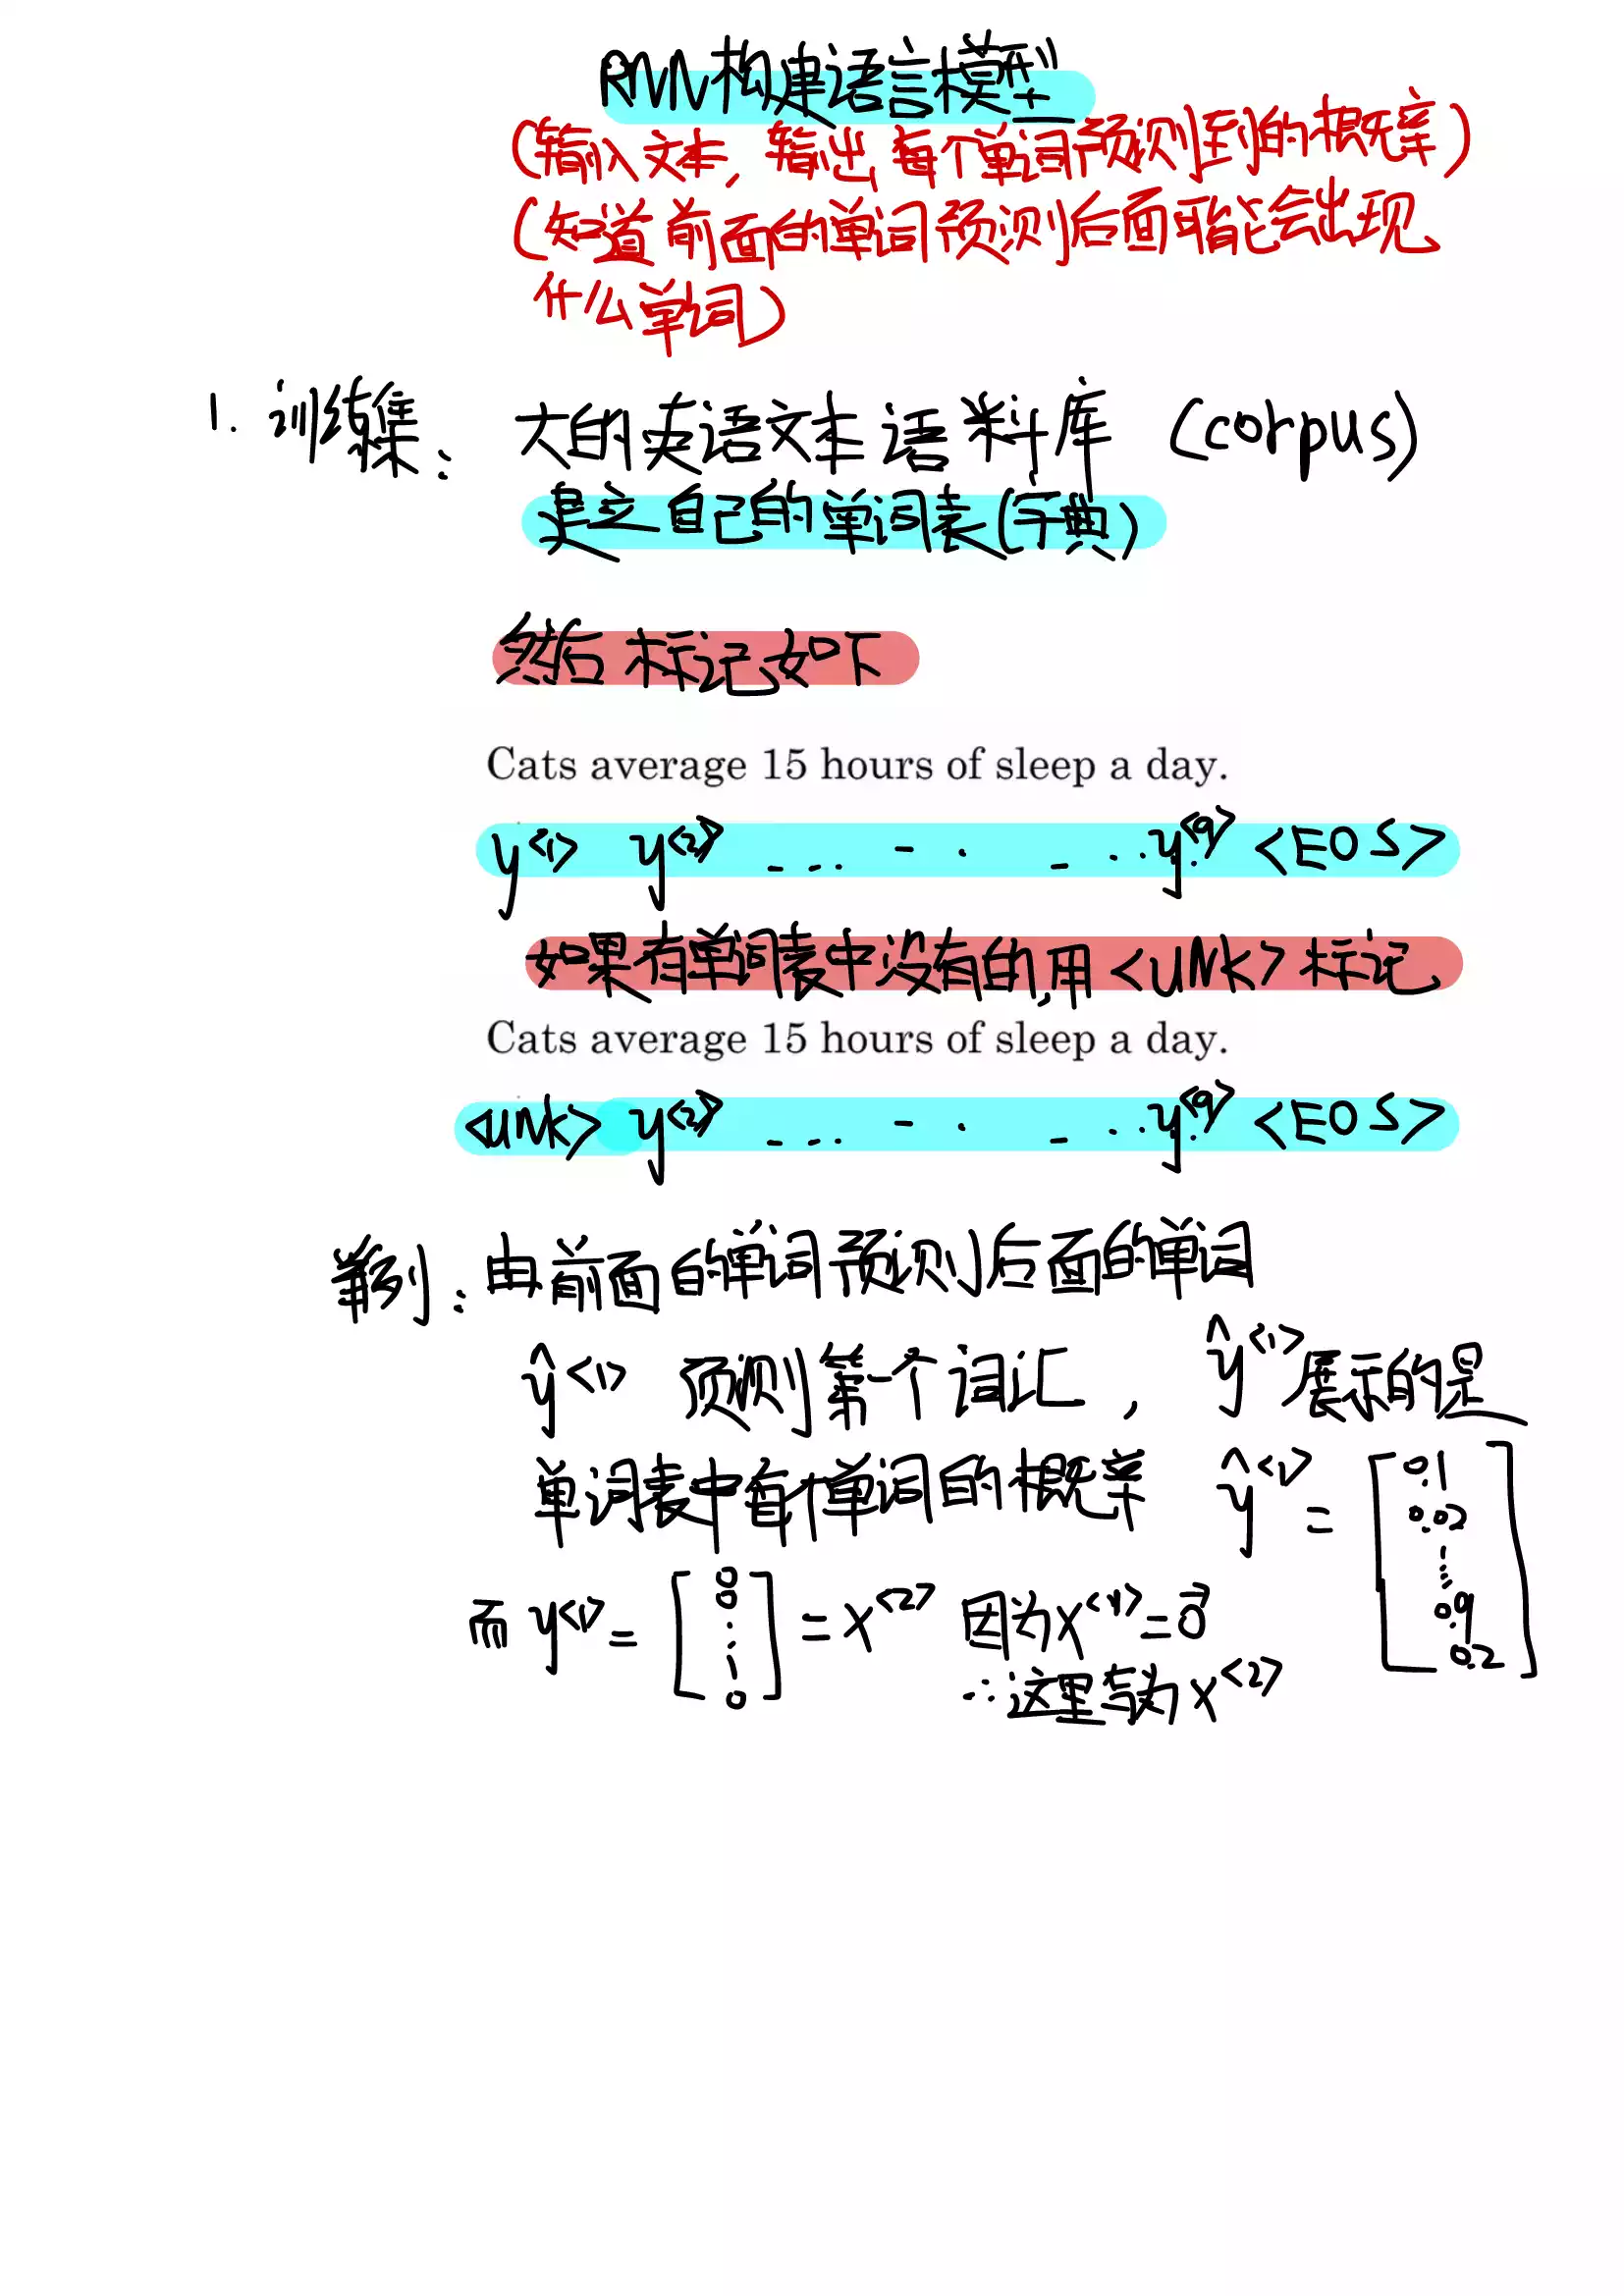 RNN构建语言模型
(输入文本, 输出每个单词预测到的概率)
(知道前面的单词预测后面可能会出现
什么单词)
1. 训练集: 大的英语文本语料库 (corpus)
建立自己的单词表(字典)
然后标记如下
Cats average 15 hours of sleep a day.
y<1> y<2> _ ... - . _ ... y<9> <EOS>
如果有单词表中没有的,用<UNK>标记
Cats average 15 hours of sleep a day.
<UNK> y<2> _ ... - . _ ... y<9> <EOS>
举例: 由前面的单词预测后面的单词
ŷ<1> 预测第一个词汇, ŷ<1>展示的是
单词表中每个单词的概率 ŷ<1> = [0.1 0.02 ⋮ 0.9 0.2]
而 y<1> = [0 0 ⋮ 1 0] = x<2> 因为x<1>=0⃗
∴这里写为x<2>